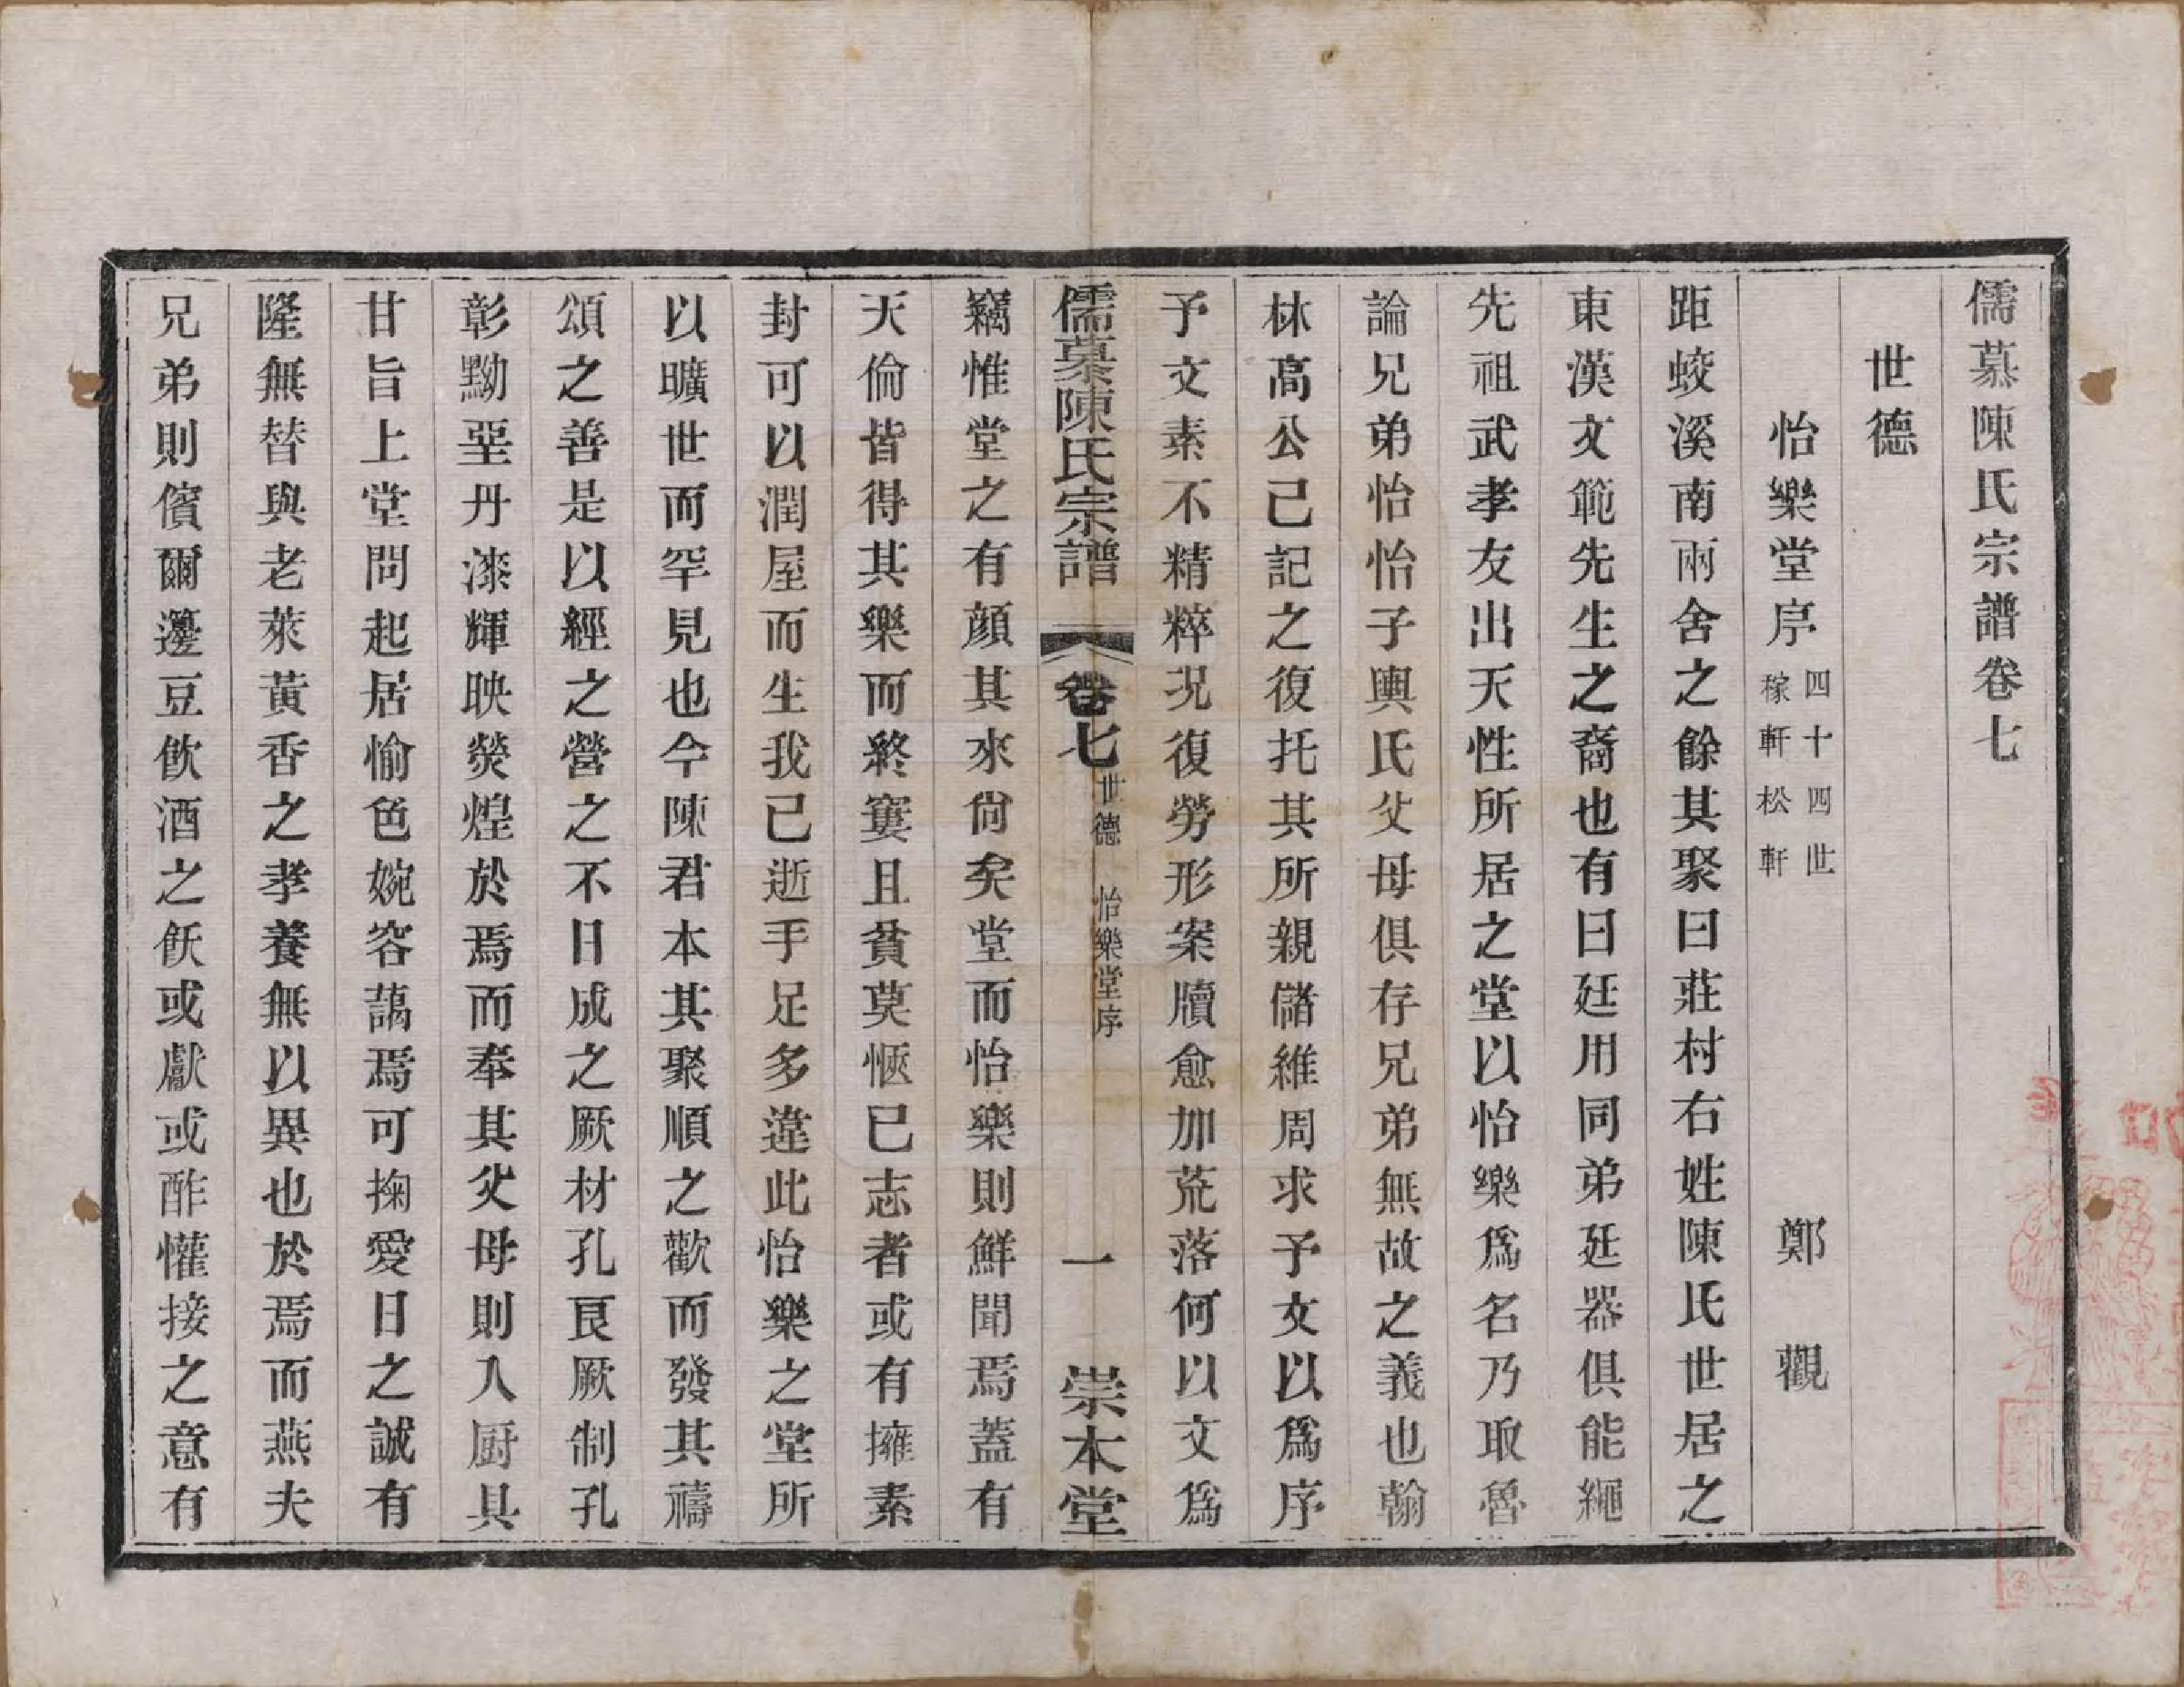 儒慕陳氏宗譜卷七
世德
怡樂堂序 四十四世 稼軒松軒 鄭觀
距蛟溪南兩舍之餘其聚曰莊村右姓陳氏世居之
東漢文範先生之裔也有曰廷用同弟廷器俱能繩
先祖武孝友出天性所居之堂以怡樂為名乃取魯
論兄弟怡怡子輿氏父母俱存兄弟無故之義也翰
林高公已記之復托其所親儲維周求予文以為序
予文素不精粹况復勞形案牘愈加荒落何以文為
儒慕陳氏宗譜 卷七 世德 怡樂堂序 一 崇本堂
竊惟堂之有顏其來尚矣堂而怡樂則鮮聞焉蓋有
天倫皆得其樂而終窶且貧莫愜已志者或有擁素
封可以潤屋而生我已逝手足多違此怡樂之堂所
以曠世而罕見也今陳君本其聚順之歡而發其禱
頌之善是以經之營之不日成之厥材孔良厥制孔
彰黝堊丹漆輝映熒煌於焉而奉其父母則入厨具
甘旨上堂問起居愉色婉容藹焉可掬愛日之誠有
隆無替與老萊黃香之孝養無以異也於焉而燕夫
兄弟則儐爾籩豆飲酒之飫或獻或酢懽接之意有